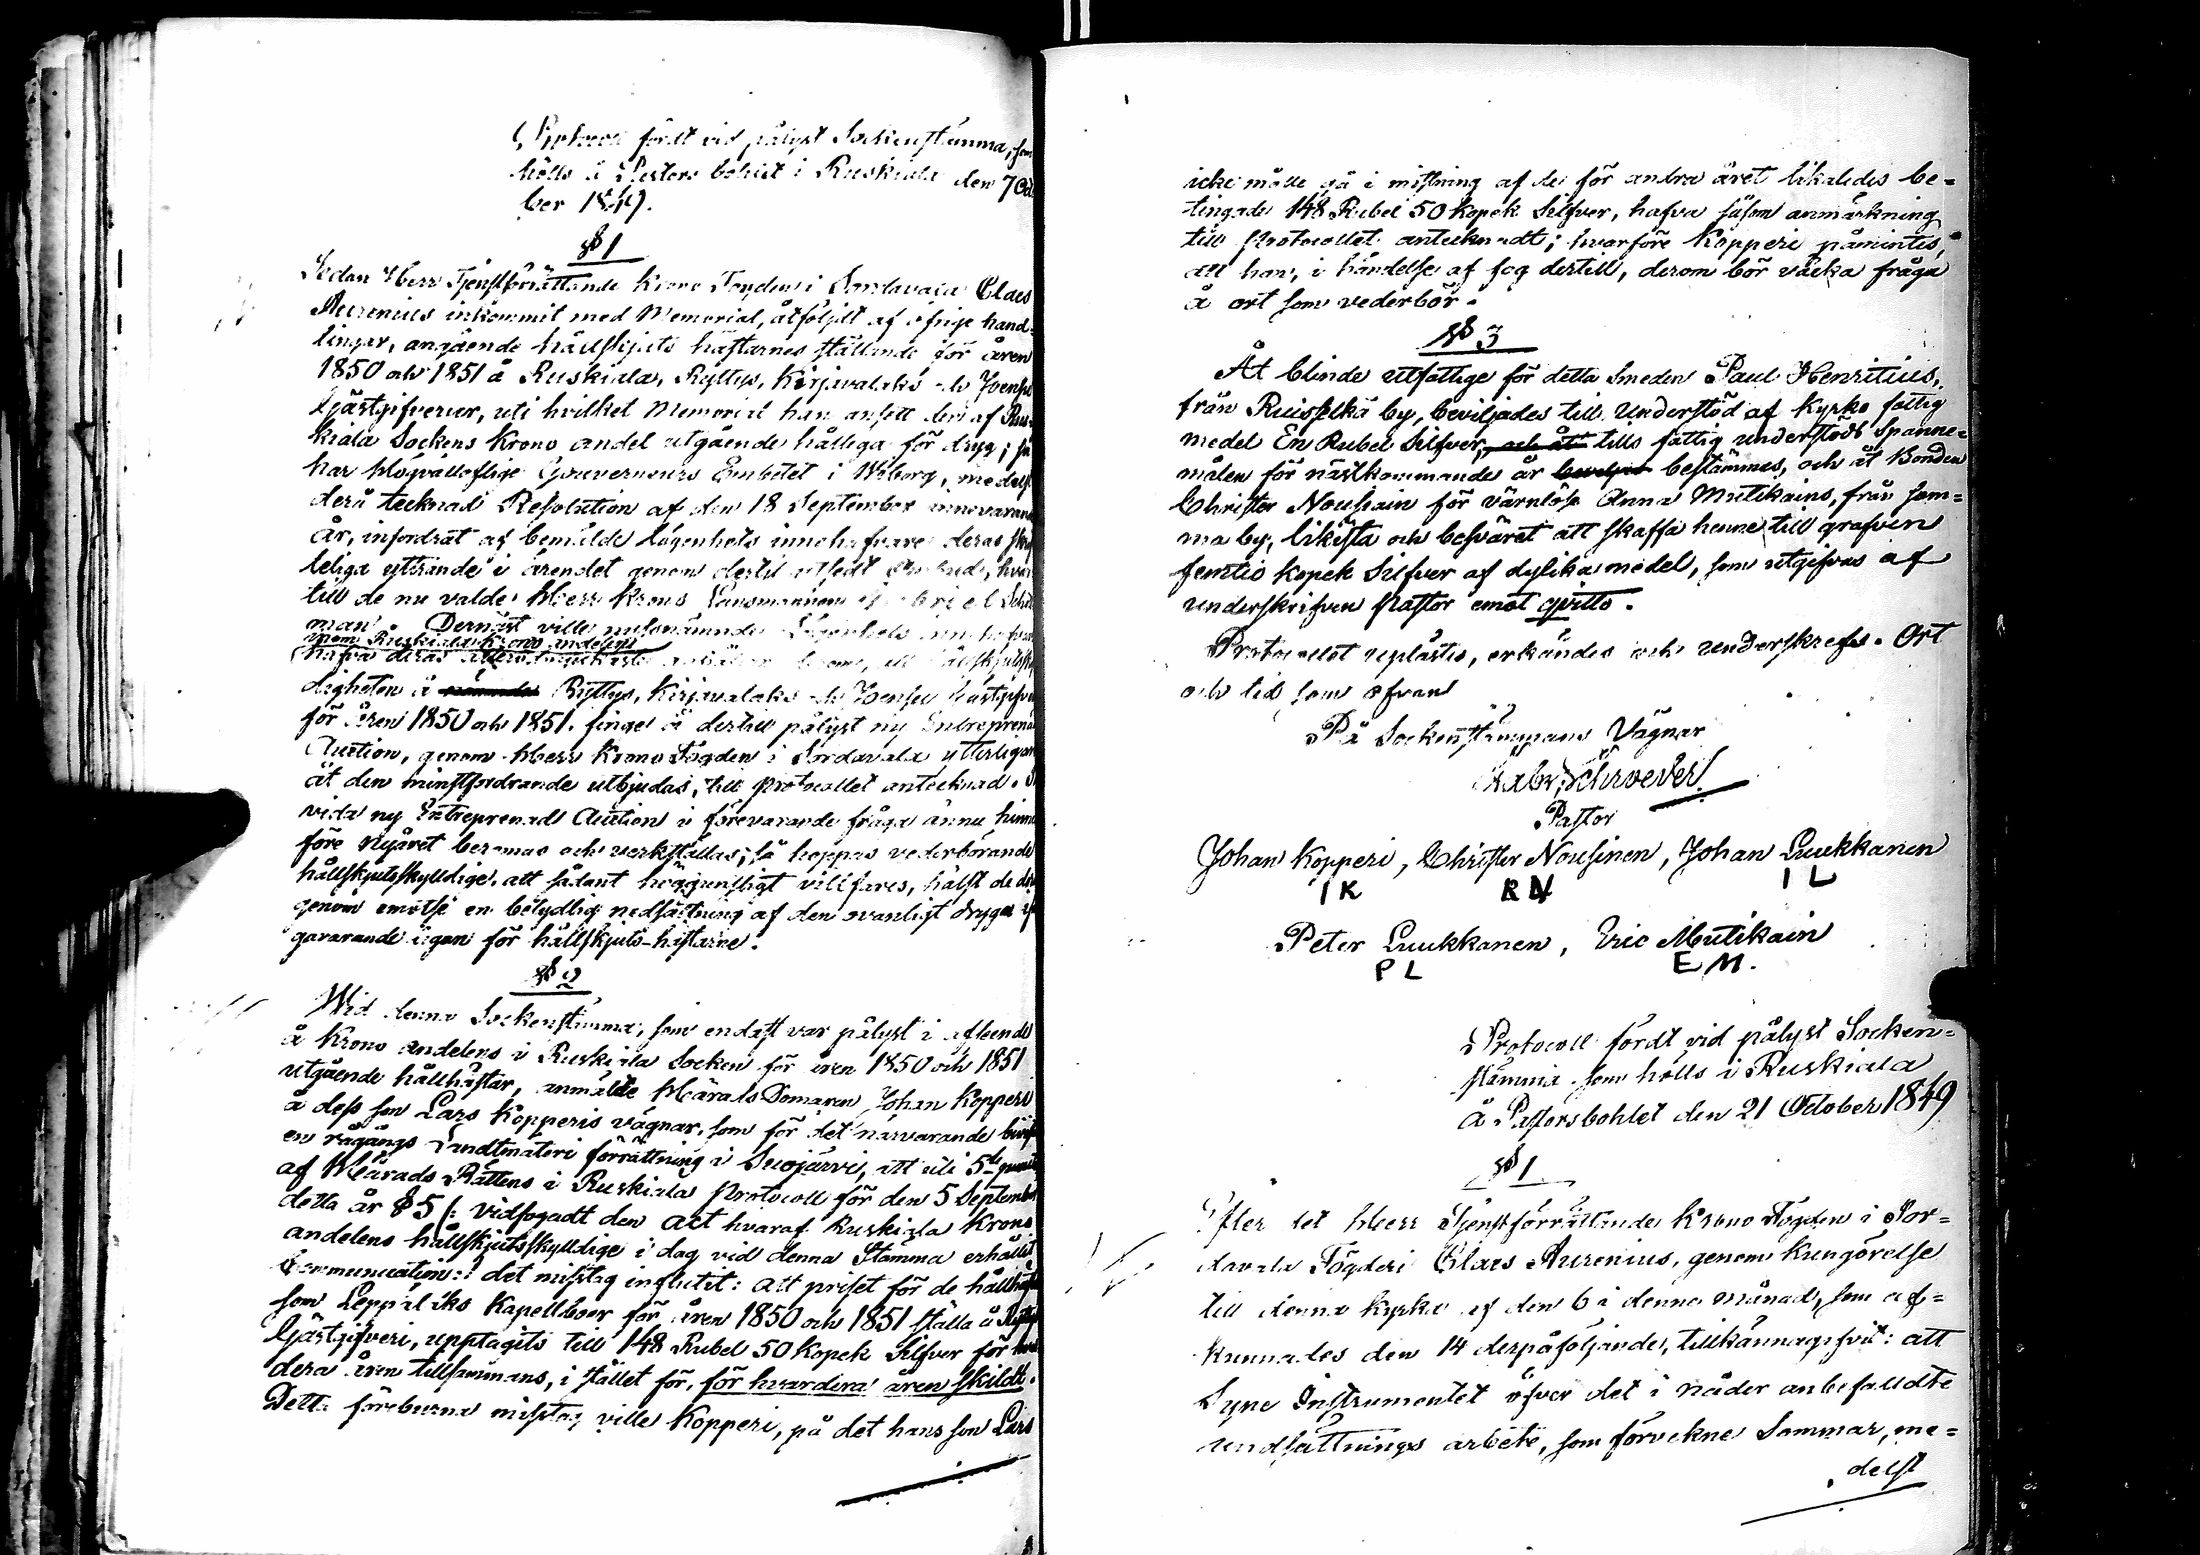 Protocoll fördt vid pålyst Sockenstämma, som
hölls å Pastors bohlet i Ruskiala den 7 Octo
ber 1849.
§ 1
Sedan Herr Tjenstförrättande Krono Fogden i Sordavala Claes
Aurenius inkommit med Memorial, åtföljdt af öfrige hand-
lingar, angående hållskjuts hästarnes ställande för åren
1850 och 1851 å Ruskiala, Ryttys, Kirjavalaks och Joensu
Gästgifverier, uti hvilket Memorial han ansett den af Rus-
kiala Sockens Krono andel utgående hållega för dryg; så
har Högvälloflige Gouverneurs Embetet i Wiborg, medelst
derå tecknad Resolution af den 18 September innevarande
år, infordrat af bemälde lägenhets innehafvare deras skrif
teliga yttrande i ärendet genom dertil utsedt Ombud, hvar
till de nu valde Herr Krono Länsmannen Gabriel
man. Dernäst ville nu benämnde Lägenhets innehafvare
inom Ruskiala Krono andelen
hafva deras anhållan derom, att hållskjutsskyl
digheten å nämnde Ryttys, Kirjavalaks och Joensu Gästgifveri
för åren 1850 och 1851. finge å dertill pålyst ny Entreprenad
Auction, genom Herr Krono Fogden i Sordavala ytterligare
åt den minstfordrande utbjudas, till Protocollet antecknad.
vida ny Entreprenad Auction i förevarande fråga ännu hinner
före Nyåret beramas och verkställas; så hoppas vederbörande
hållskjutsskyldige, att sådant höggunstigt villfares, hälst de der
genom emotse en betydlig nedsättning af den ovanligt dryga
gavarande ägan för hållskjuts-hästarne.
§ 2
Wid denna Sockenstämma, som endast var pålyst i afseende
å Krono andelens i Ruskiala Socken för åren 1850 och 1851
utgående hållhästar, anmälte Härads Domaren Johan Kopperi
å dess son Lars Kopperis vägnar, som för det närvarande
en rågångs Landtmäteri förrättning i Suojärvi, att uti 5te punkt
af Härads Rättens i Ruskiala Protocoll för den 5 September
detta år § 5 /: vidfogadt den Act hvaraf Ruskiala Krono
andelens hållskjutsskyldige i dag vid denna Stämma erhållit
Communication:/ det misstag influtit: att priset för de hållhästar
som Leppälaks Kapellboer för åren 1850 och 1851 ställa å Ryttys
Gästgifveri, upptagits till 148 Rubel 50 Kopek Silfver för
dera åren tillsammans, i stället för, för hvardera åren skildt.
Detta föreburna misstag ville Kopperi, på det hans son Lars
icke måtte gå i mistning af de för andra året likaledes be=
tingade 148 Rubel 50 Kopek Silfver, hafva såsom anmärkning
till Protocollet antecknadt; hvarföre Kopperi påmintes,
att han, i händelse af fog dertill, derom bör väcka fråga
å ort som vederbör.
§ 3
Åt blinde utfattige för detta Smeden Paul Henritius,
från Ruisselkä by, beviljades till Understöd af Kyrko fattig
medel En Rubel Silfver, och åt tills fattig understöds Spanne=
målen för nästkommande år bestämmes, och åt Bonden
Christer Nousiain för värnlösa Anna Mutikains, från sam=
ma by, likista och besväret att skaffa henne till grafven
femtio kopek Silfver af dylika medel, som utgifvas af
underskrifven Pastor emot qvitto.
Protocollet uplästes, erkändes och underskrefs. Ort
och tid som ofvan
På Sockenstämmans Vägnar
Gabr. Schroeder
Pastor
Johan Kopperi, Christer Nousinen, Johan Luukkanen
I K          K N          I L
Peter Luukkanen, Eric Mutikain
P L          E M.
Protocoll fördt vid pålyst Socken=
stämma som hölls i Ruskiala
å Pastorsbohlet den 21 October 1849
§ 1
Efter det Herr Tjenstförrättande Krono Fogden i Sor=
davala Fögderi Claes Aurenius, genom Kungörelse
till denna Kyrka af den 6 i denna månad, som af=
kunnades den 14 derpåföljande, tillkännagifvit: att
Syne Instrumentet öfver det i nåder anbefalldte
undsättnings arbete, som förvekne Sommar, me=
delst